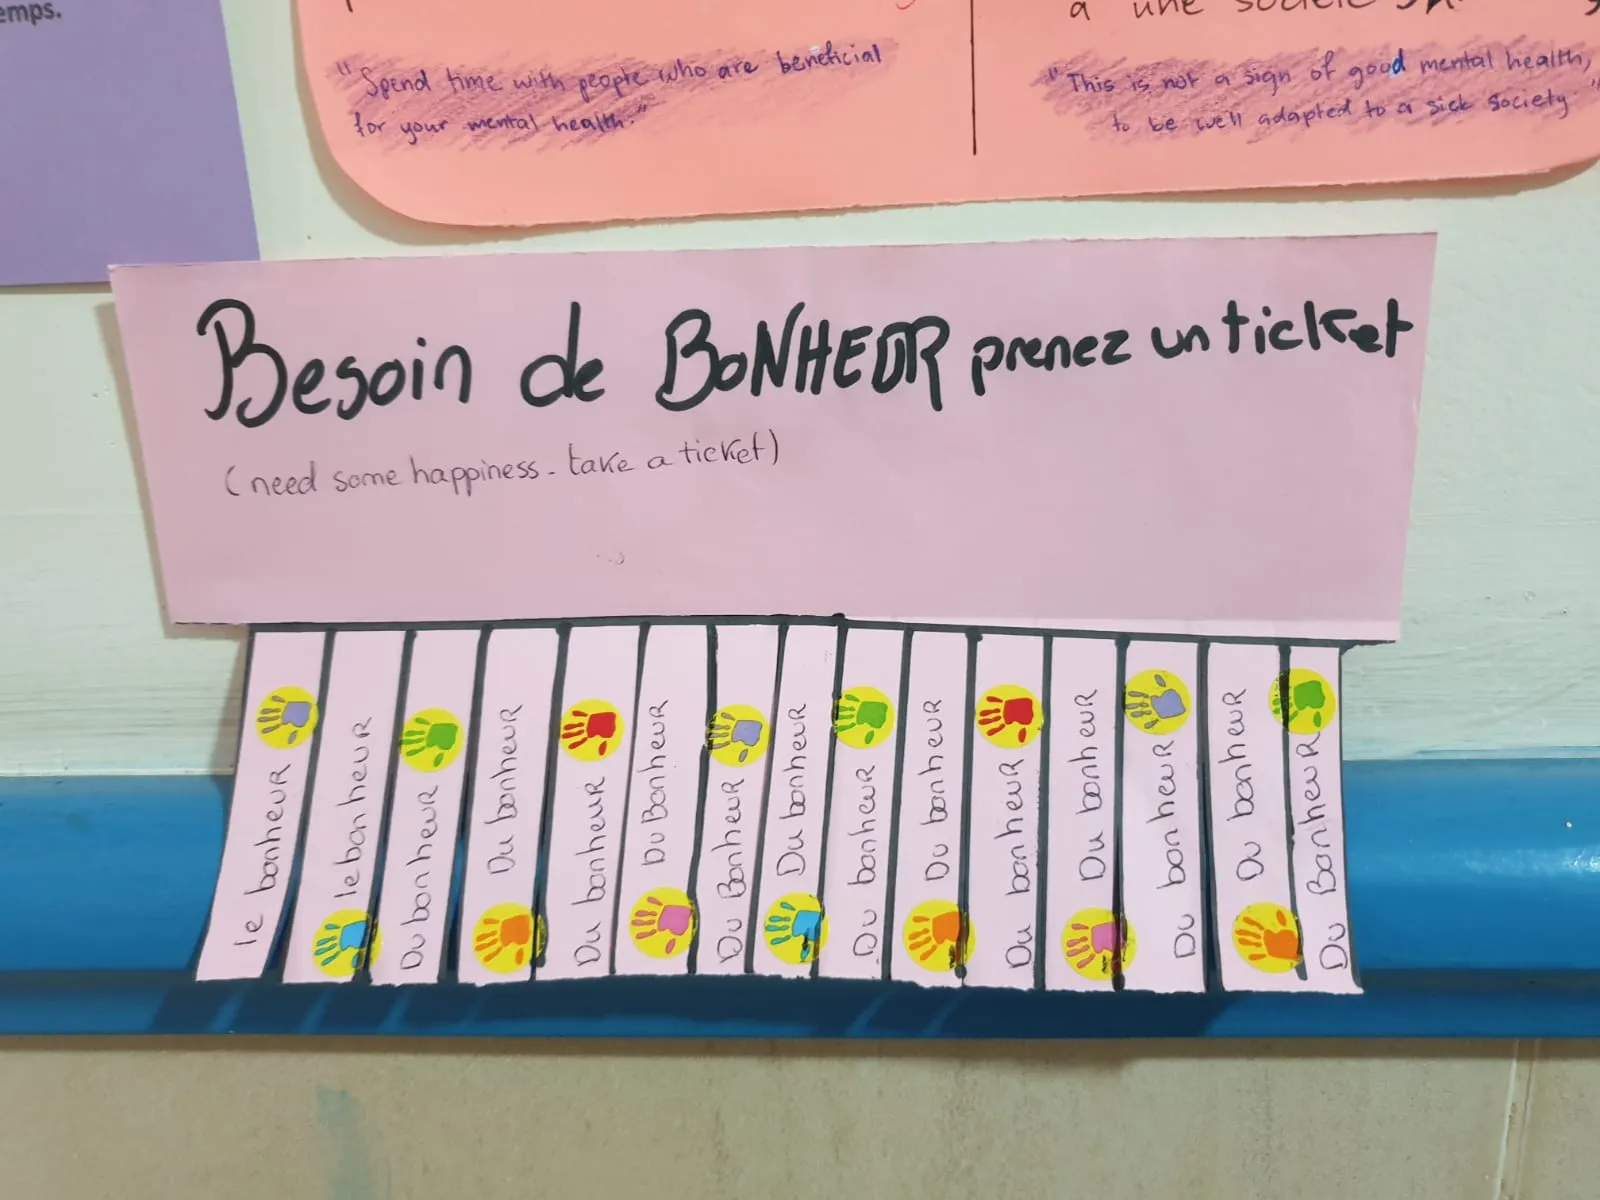 emps.
"Spend time with people who are beneficial
for your mental health."
à une société
"This is not a sign of good mental health,
to be well adapted to a sick society."
Besoin de BoNHEUR prenez un ticket
(need some happiness - take a ticket)
le bonheur
le bonheur
Du bonheur
Du bonheur
Du bonheur
Du Bonheur
Du Bonheur
Du bonheur
Du bonheur
Du bonheur
Du bonheur
Du bonheur
Du bonheur
Du bonheur
Du Bonheur